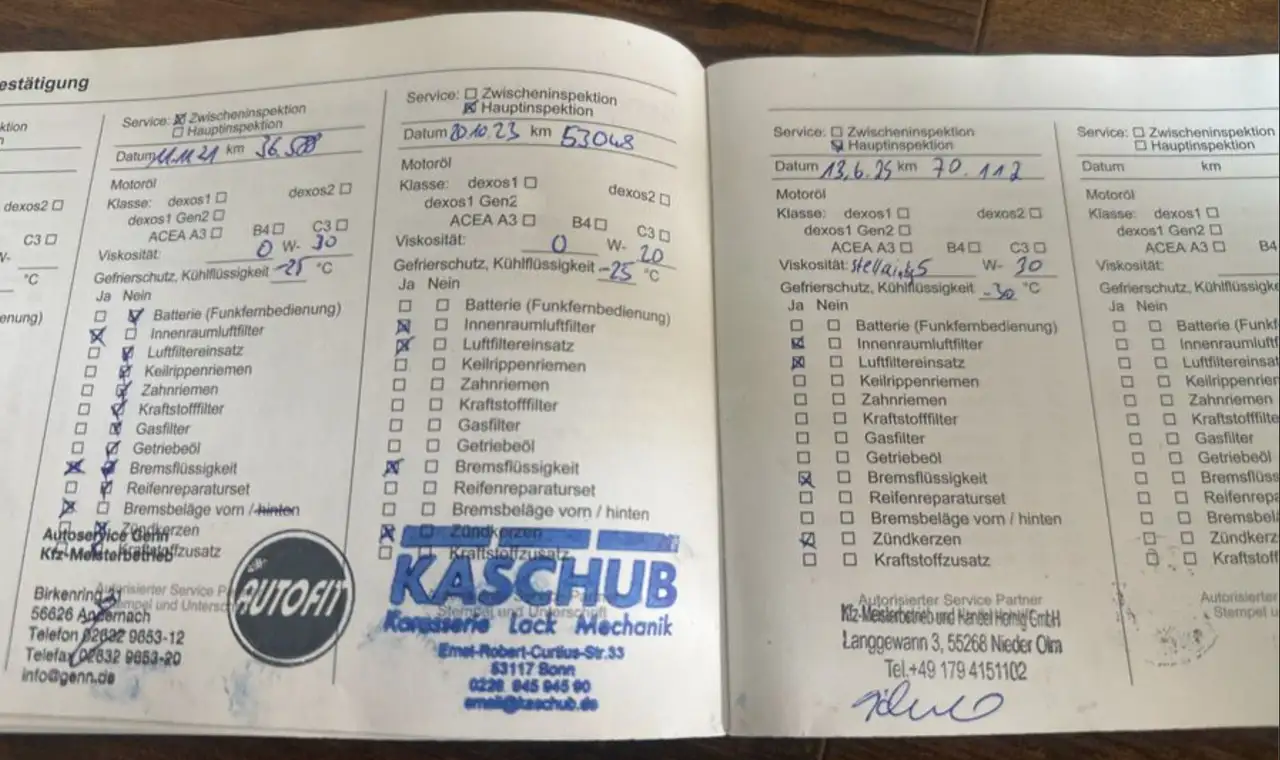 estätigung
ktion
n
dexos2 ☐
C3 ☐
W-
°C
enung)
Service: ☒ Zwischeninspektion
☐ Hauptinspektion
Datum 11.11.21 km 36.588
Motoröl
Klasse: dexos1 ☐ dexos2 ☐
dexos1 Gen2 ☐
ACEA A3 ☐ B4 ☐ C3 ☐
Viskosität: 0 W- 30
Gefrierschutz, Kühlflüssigkeit -25 °C
Ja Nein
☐ ☒ Batterie (Funkfernbedienung)
☒ ☐ Innenraumluftfilter
☐ ☒ Luftfiltereinsatz
☐ ☒ Keilrippenriemen
☐ ☒ Zahnriemen
☐ ☒ Kraftstofffilter
☐ ☒ Gasfilter
☐ ☒ Getriebeöl
☒ ☒ Bremsflüssigkeit
☐ ☒ Reifenreparaturset
☒ ☐ Bremsbeläge vorn / hinten
☐ ☒ Zündkerzen
☐ ☒ Kraftstoffzusatz
Autorisierter Service Pa
Stempel und Untersch
Autoservice Genn
Kfz-Meisterbetrieb
Birkenring 31
56626 Andernach
Telefon 02632 9653-12
Telefax 02632 9653-20
info@genn.de
AUTOFIT
Service: ☐ Zwischeninspektion
☒ Hauptinspektion
Datum 20.10.23 km 53048
Motoröl
Klasse: dexos1 ☐ dexos2 ☐
dexos1 Gen2
ACEA A3 ☐ B4 ☐ C3 ☐
Viskosität: 0 W- 20
Gefrierschutz, Kühlflüssigkeit -25 °C
Ja Nein
☐ ☐ Batterie (Funkfernbedienung)
☒ ☐ Innenraumluftfilter
☒ ☐ Luftfiltereinsatz
☐ ☐ Keilrippenriemen
☐ ☐ Zahnriemen
☐ ☐ Kraftstofffilter
☐ ☐ Gasfilter
☐ ☐ Getriebeöl
☒ ☐ Bremsflüssigkeit
☐ ☐ Reifenreparaturset
☐ ☐ Bremsbeläge vorn / hinten
☒ ☐ Zündkerzen
☐ ☐ Kraftstoffzusatz
Stempel und Unterschrift
KASCHUB
Karosserie Lack Mechanik
Ernst-Robert-Curtius-Str.33
53117 Bonn
0228 945 945 90
email@kaschub.de
Service: ☐ Zwischeninspektion
☒ Hauptinspektion
Datum 13.6.25 km 70.112
Motoröl
Klasse: dexos1 ☐ dexos2 ☐
dexos1 Gen2 ☐
ACEA A3 ☐ B4 ☐ C3 ☐
Viskosität: W- 30
Gefrierschutz, Kühlflüssigkeit -30 °C
Ja Nein
☐ ☐ Batterie (Funkfernbedienung)
☒ ☐ Innenraumluftfilter
☒ ☐ Luftfiltereinsatz
☐ ☐ Keilrippenriemen
☐ ☐ Zahnriemen
☐ ☐ Kraftstofffilter
☐ ☐ Gasfilter
☐ ☐ Getriebeöl
☒ ☐ Bremsflüssigkeit
☐ ☐ Reifenreparaturset
☐ ☐ Bremsbeläge vorn / hinten
☒ ☐ Zündkerzen
☐ ☐ Kraftstoffzusatz
Autorisierter Service Partner
Kfz-Meisterbetrieb und Handel Hornig GmbH
Langgewann 3, 55268 Nieder Olm
Tel.+49 179 4151102
Service: ☐ Zwischeninspektion
☐ Hauptinspektion
Datum km
Motoröl
Klasse: dexos1 ☐
dexos1 Gen2 ☐
ACEA A3 ☐ B4
Viskosität:
Gefrierschutz, Kühlflüssigke
Ja Nein
☐ ☐ Batterie (Funkf
☐ ☐ Innenraumluftf
☐ ☐ Luftfiltereinsat
☐ ☐ Keilrippenrieme
☐ ☐ Zahnriemen
☐ ☐ Kraftstofffilter
☐ ☐ Gasfilter
☐ ☐ Getriebeöl
☐ ☐ Bremsflüss
☐ ☐ Reifenrepa
☐ ☐ Bremsbelä
☐ ☐ Zündkerz
☐ ☐ Kraftstoff
Autoris
Stempel u